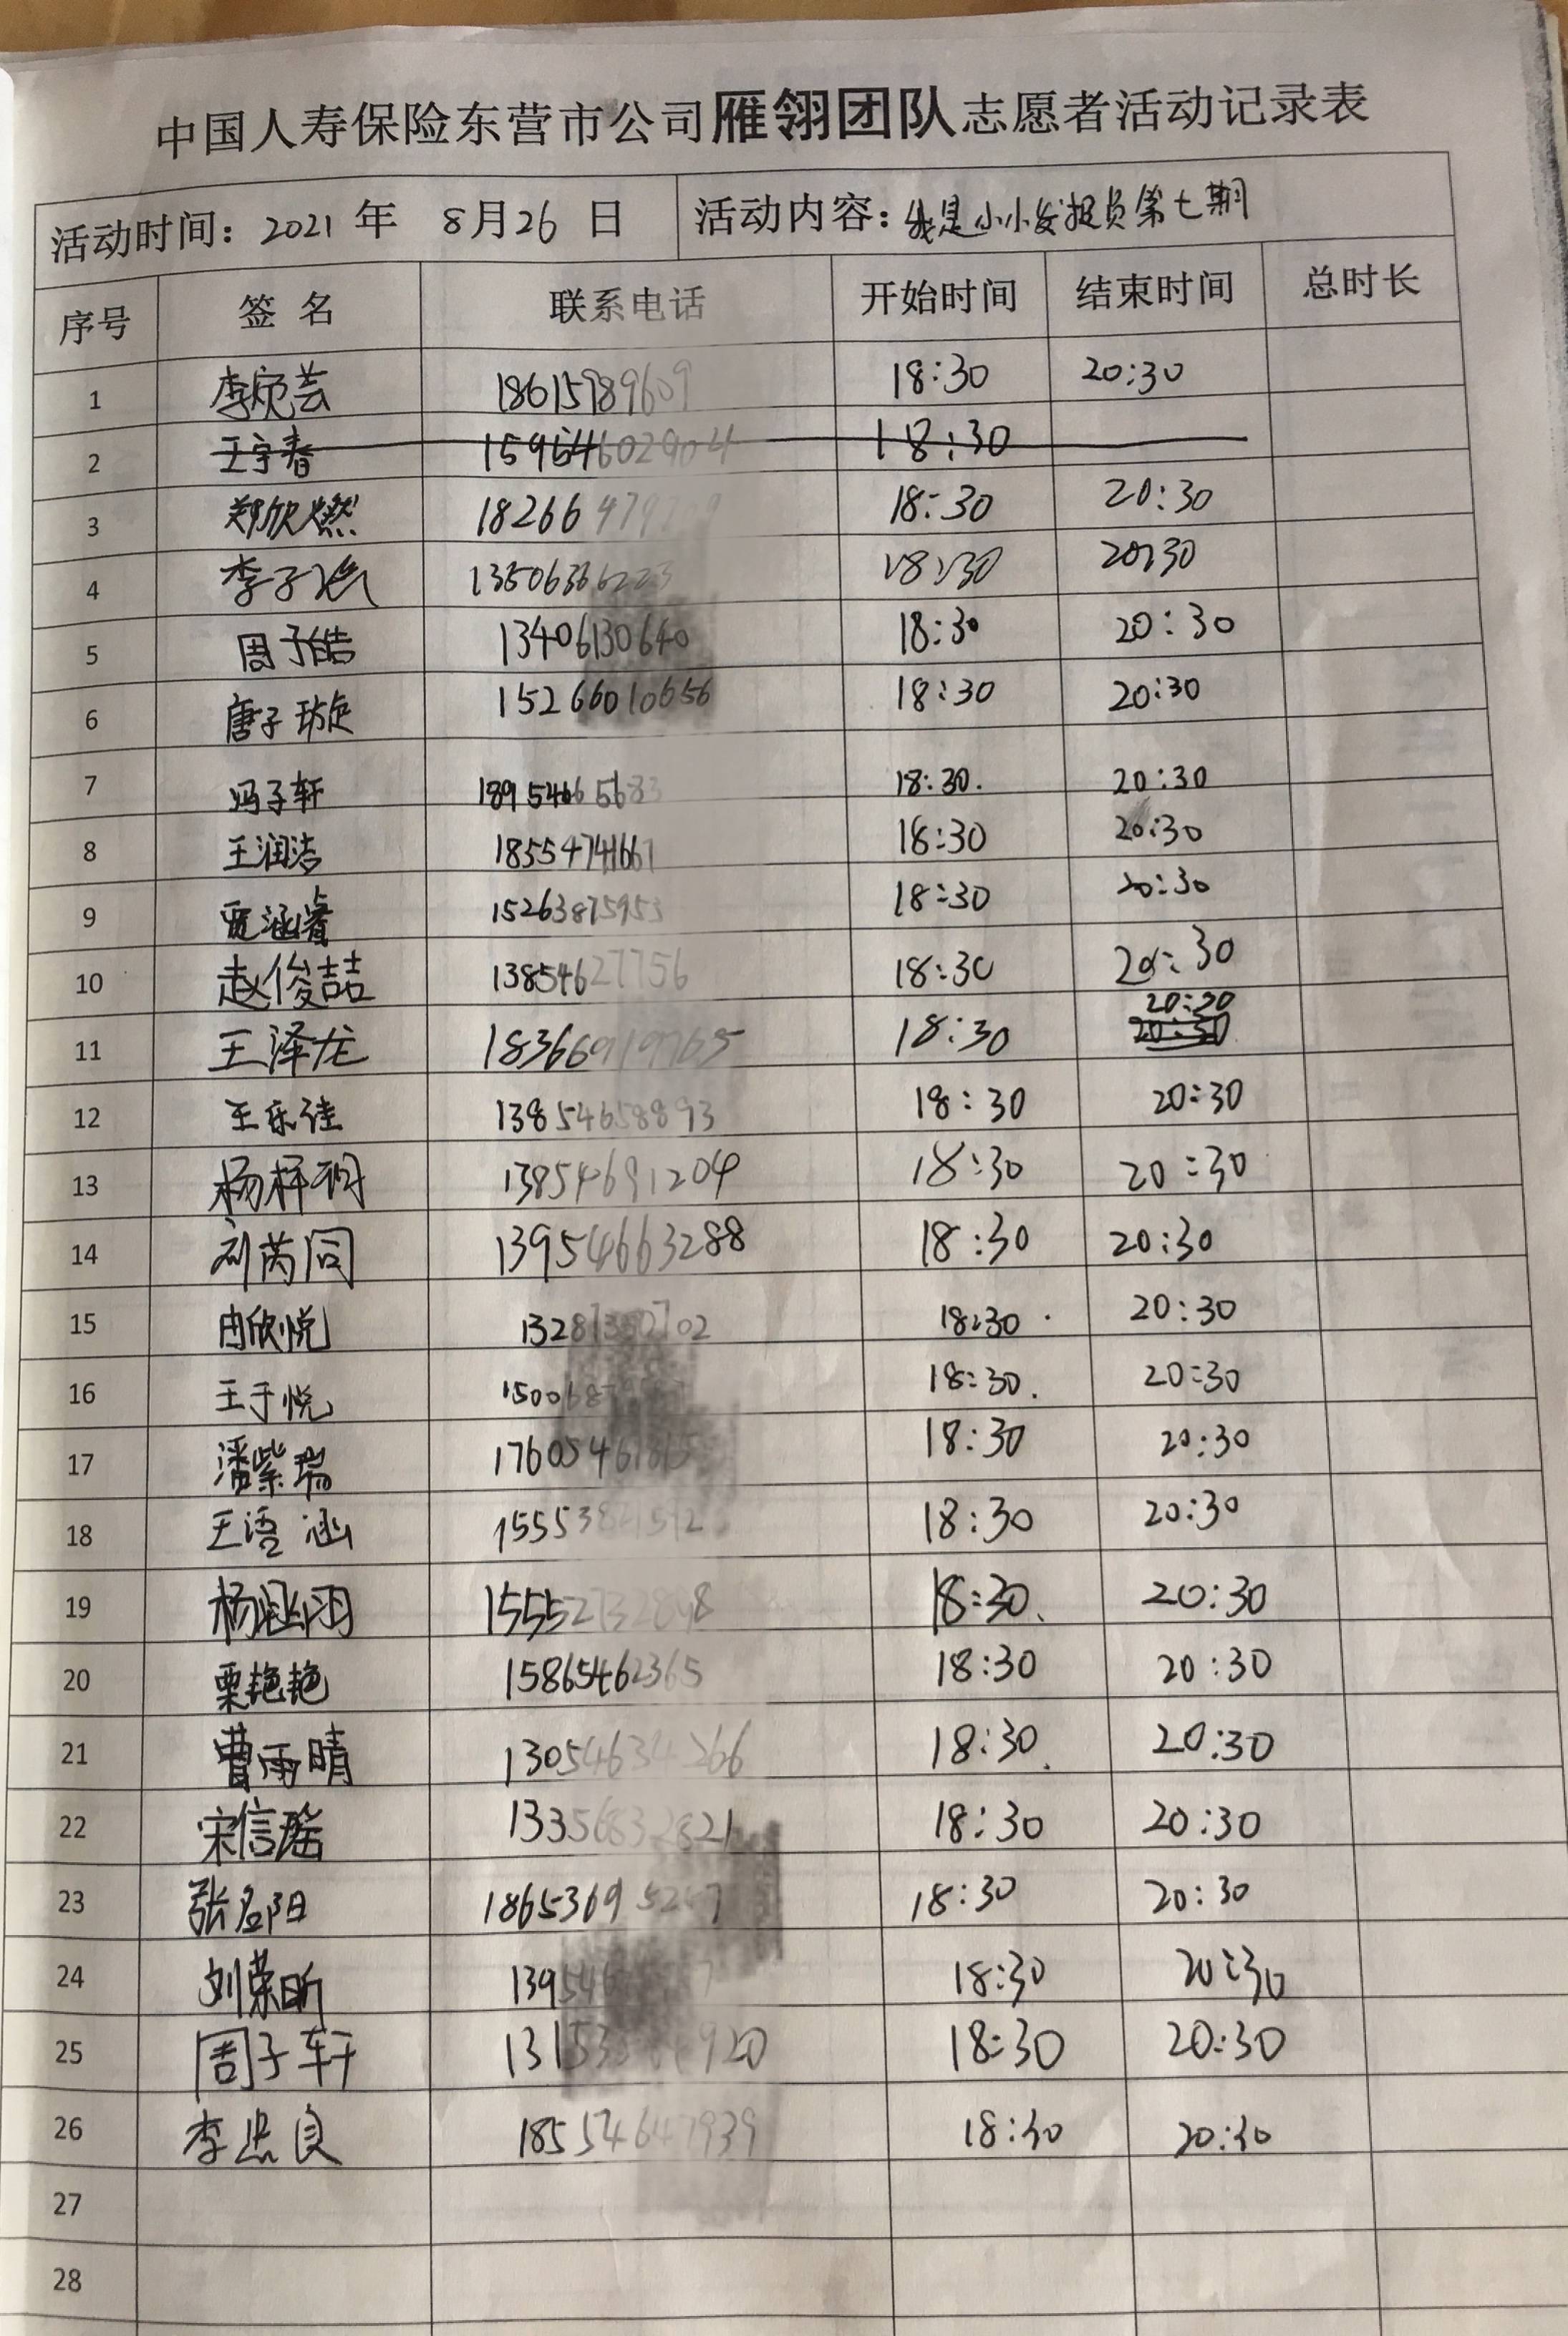 中国人寿保险东营市公司雁翎团队志愿者活动记录表
活动时间：2021 年 8月26 日 活动内容：我是小小发报员第七期
序号 签 名 联系电话 开始时间 结束时间 总时长
1 李宛芸 18615789609 18:30 20:30
2 王宇春 18:30
3 郑欣燃 18:30 20:30
4 李子 18:30 20:30
5 周子皓 13406130640 18:30 20:30
6 唐子璇 15266010656 18:30 20:30
7 冯子轩 18954665683 18:30. 20:30
8 王润洁 18554741667 18:30 20:30
9 贾涵睿 15263875953 18:30 20:30
10 赵俊喆 13854627756 18:30 20:30
11 王泽龙 18366919765 18:30 20:20
12 王乐佳 13854658893 18:30 20:30
13 杨梓 13854691204 18:30 20:30
14 刘芮同 13954663288 18:30 20:30
15 冉欣悦 18:30 20:30
16 王于悦 18:30. 20:30
17 潘紫瑞 18:30 20:30
18 王语涵 18:30 20:30
19 杨涵羽 18:30 20:30
20 栗艳艳 15865462365 18:30 20:30
21 曹雨晴 18:30 20:30
22 宋信瑶 18:30 20:30
23 张名阳 18:30 20:30
24 刘荣昕 18:30 20:30
25 周子轩 18:30 20:30
26 李忠良 18:30 20:30
27
28